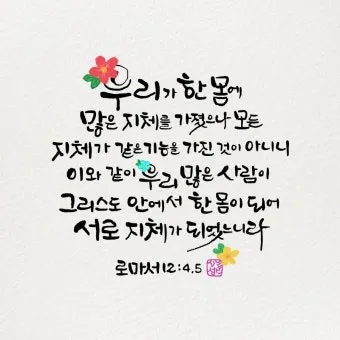 우리가 한 몸에
많은 지체를 가졌으나 모든
지체가 같은 기능을 가진 것이 아니니
이와 같이 우리 많은 사람이
그리스도 안에서 한 몸이 되어
서로 지체가 되었느니라
로마서 12:4.5